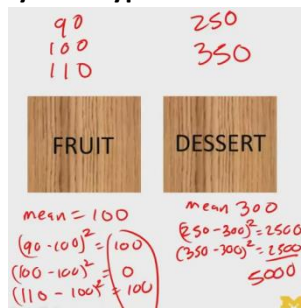 90
100
110
250
350
FRUIT
DESSERT
mean = 100
(90 - 100)² = 100
(100 - 100)² = 0
(110 - 100)² = 100
mean 300
(250 - 300)² = 2500
(350 - 300)² = 2500
5000